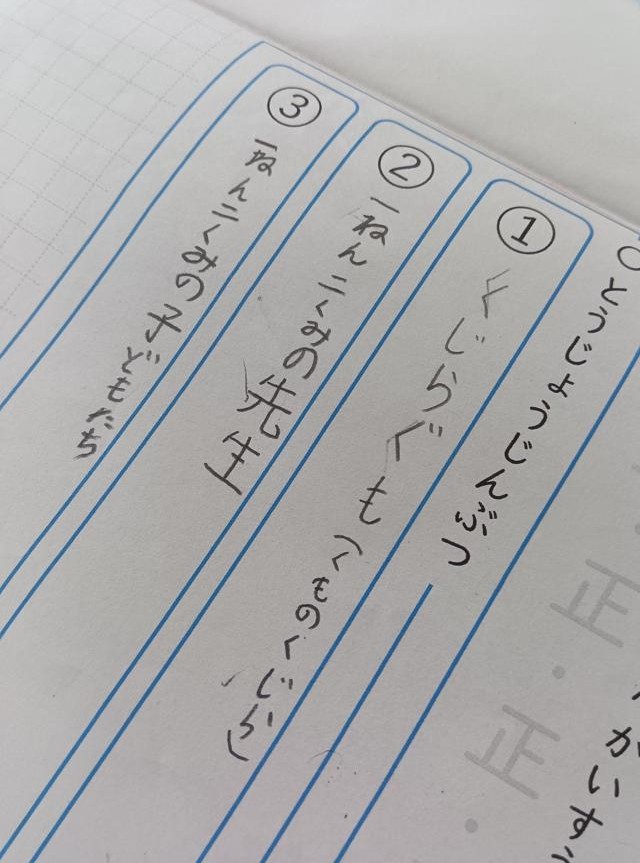 とうじょうじんぶつ
① くじらぐも(くものくじら)
② 一ねん二くみの先生
③ 一ねん二くみの子どもたち
正・正・